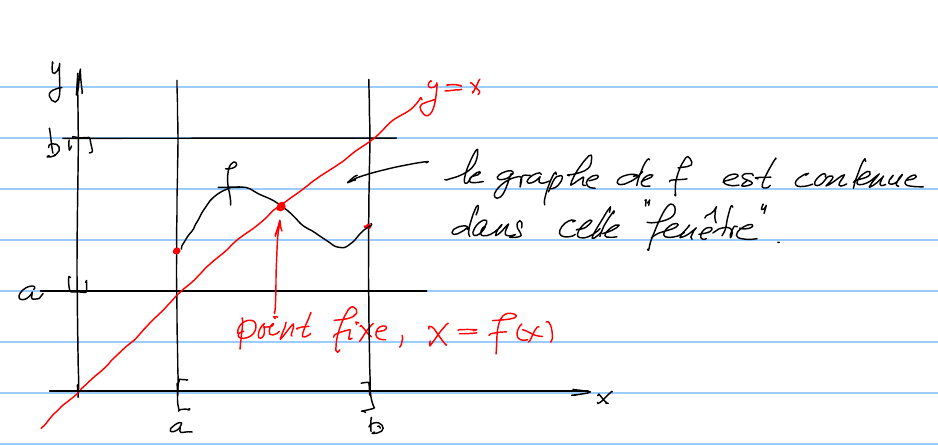 y
y=x
b
f
le graphe de f est contenue
dans cette "fenêtre".
a
point fixe, x = f(x)
x
a
b